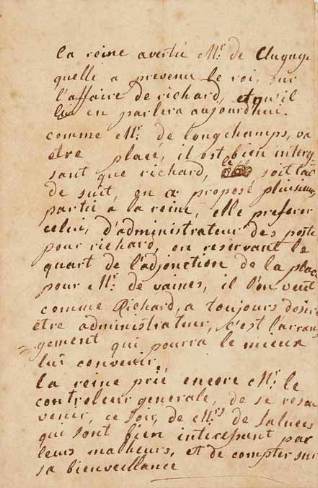 la reine avertie Mr. de Clugny
quelle a prevenu le roi, sur
l'affaire de richard, et qu'il
lui en parlera aujourdhui.
comme Mr. de longchamps, va
etre placé, il est bien
sant que richard, le soit
de suit, on a proposé plusieur
partie à la reine, elle preferer
celui, d'administrateur des poste
pour richard, en reservant le
quart de l'adjonction de la place
pour Mr. de vaines, il l'on veut
comme Richard, a toujours desiré
être administrateur, c'est l'arran
gement qui pourra le mieux
lui convenir.
la reine prie encore Mr. le
controleur generale, de se resou
venir, ce soir, de Mrs. de saluces
qui sont bien interessant par
leurs malheurs, et de compter sur
sa bienveillance